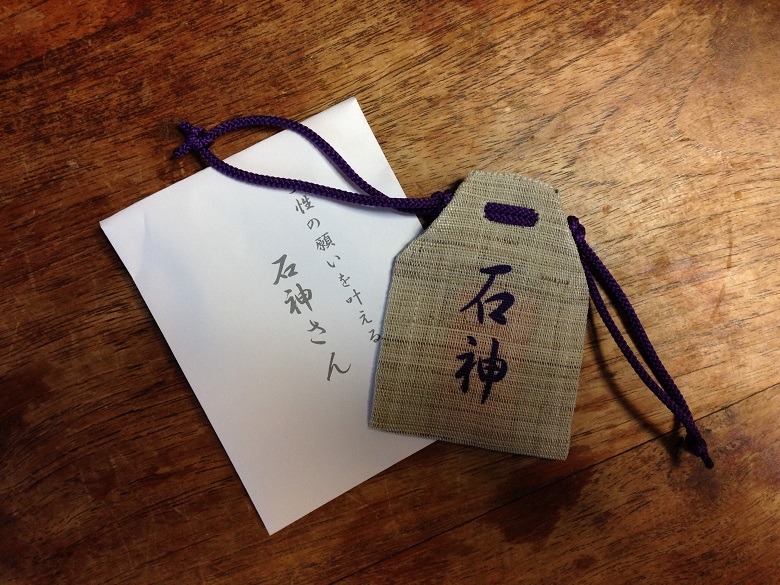 性の願いを叶える
石神さん
石神